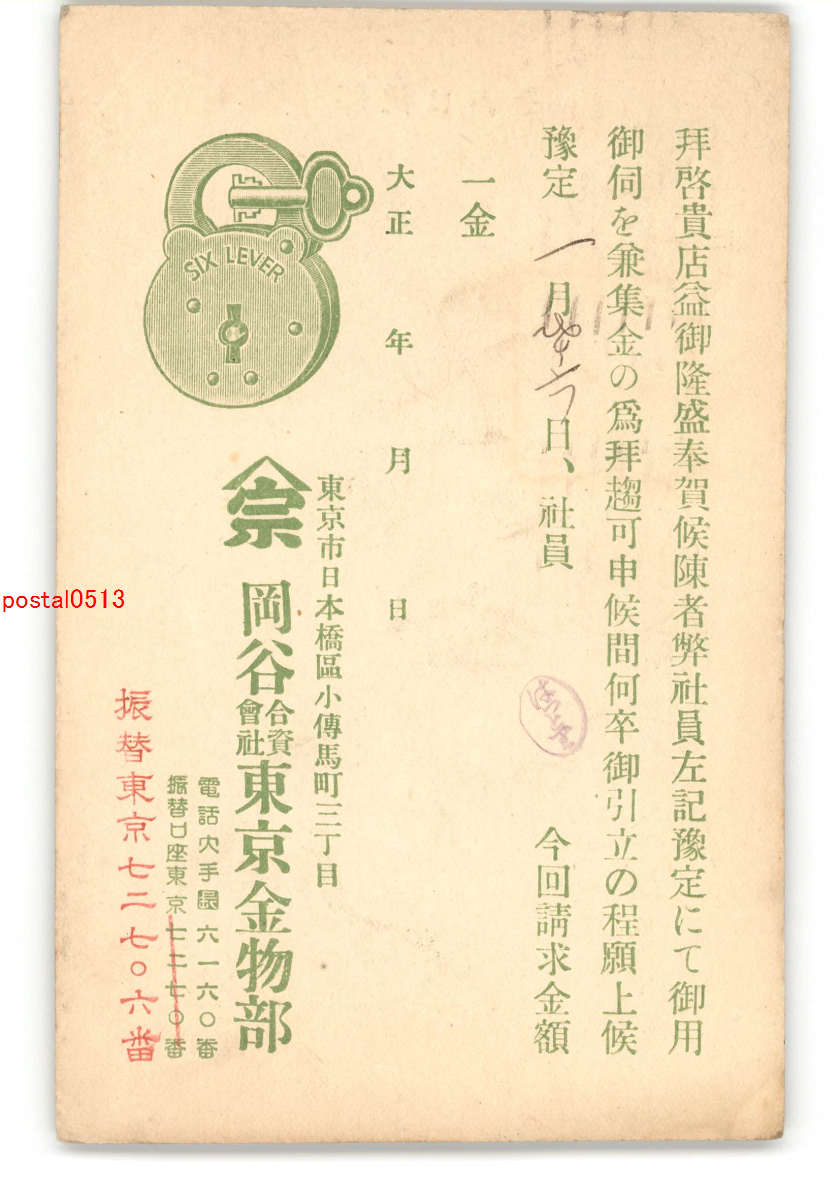 拜啓貴店益御隆盛奉賀候陳者弊社員左記豫定にて御用
御伺を兼集金の爲拜趨可申候間何卒御引立の程願上候
豫定 一月 日、社員 今回請求金額
一金
大正 年 月 日
SIX LEVER
東京市日本橋區小傳馬町三丁目
宗 岡谷合資會社東京金物部
電話大手圓六一六〇番
振替口座東京七二七〇番
振替東京七二七〇六番
postal0513